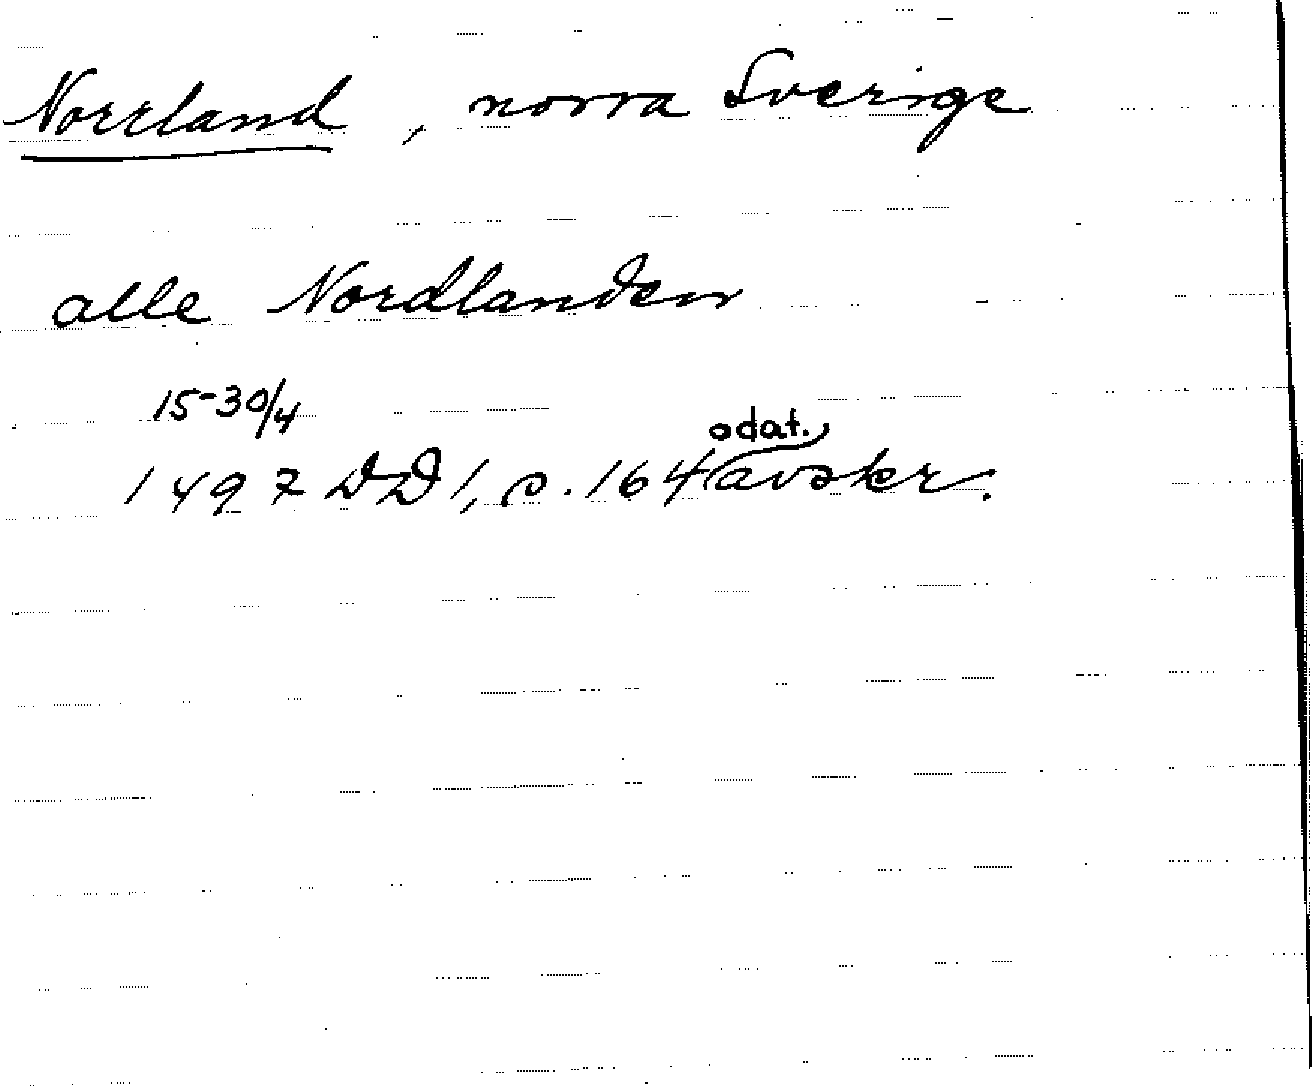 Norrland, norra Sverige
alle Nordlanden
15-30/4
1497 DD 1, s. 164 odat. avskr.